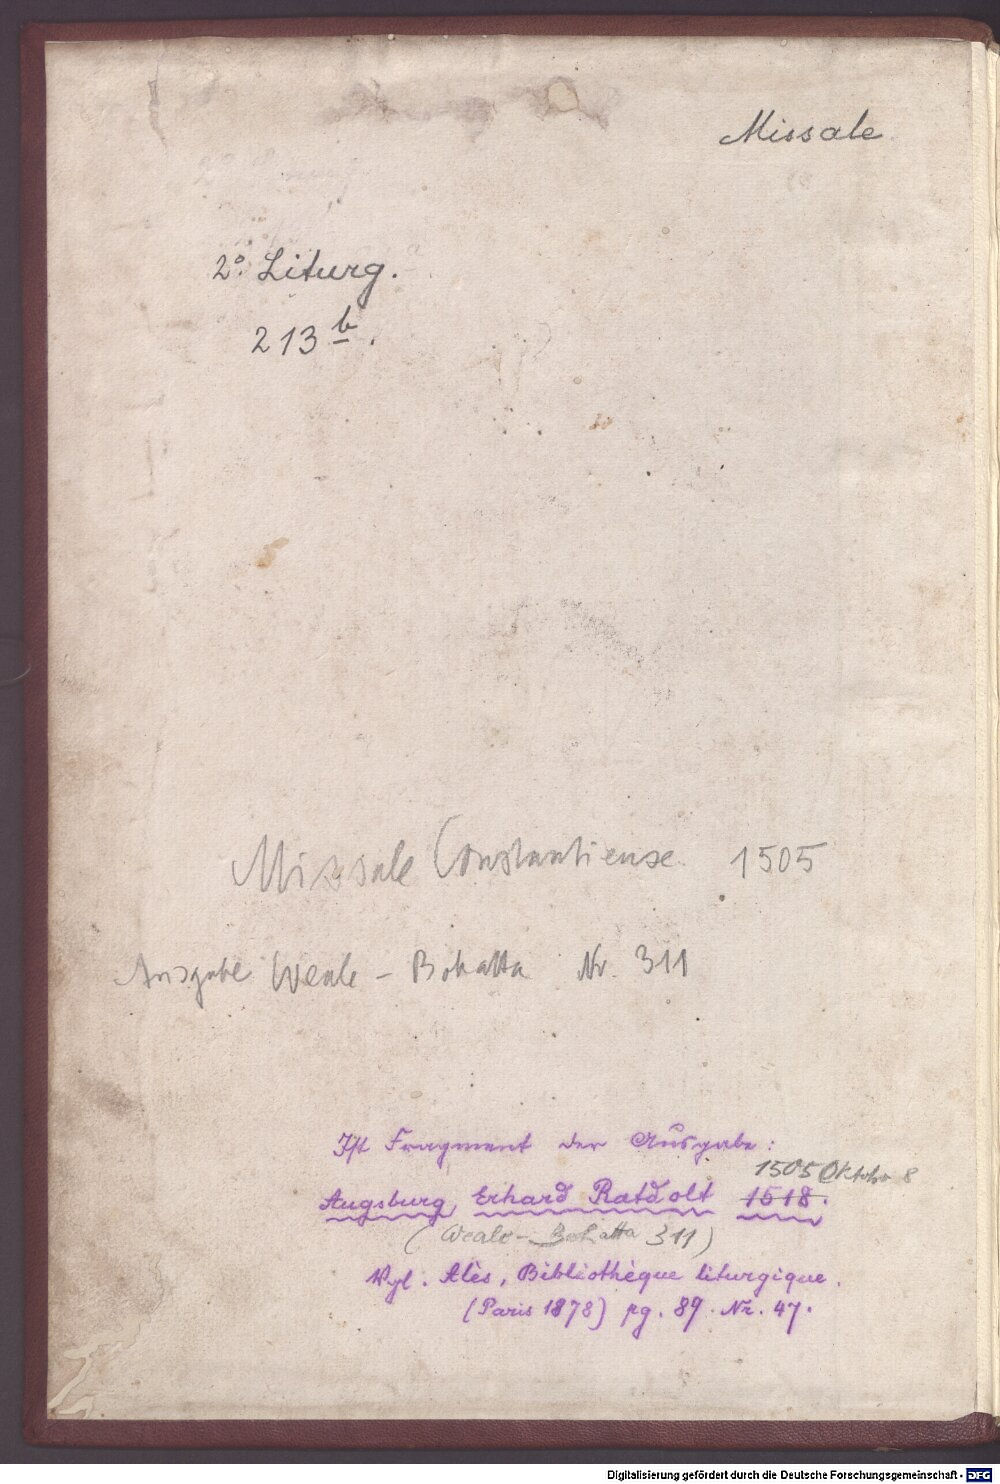 Missale
2°. Liturg.
213 b.
Missale Constantiense 1505
Ausgabe Weale - Bohatta Nr. 311
Ist Fragment der Ausgabe:
1505 Oktober 8
Augsburg, Erhard Ratdolt 1518.
(Weale - Bohatta 311)
Vgl. Alès, Bibliothèque liturgique.
(Paris 1878) pg. 89. Nr. 47.
Digitalisierung gefördert durch die Deutsche Forschungsgemeinschaft - DFG